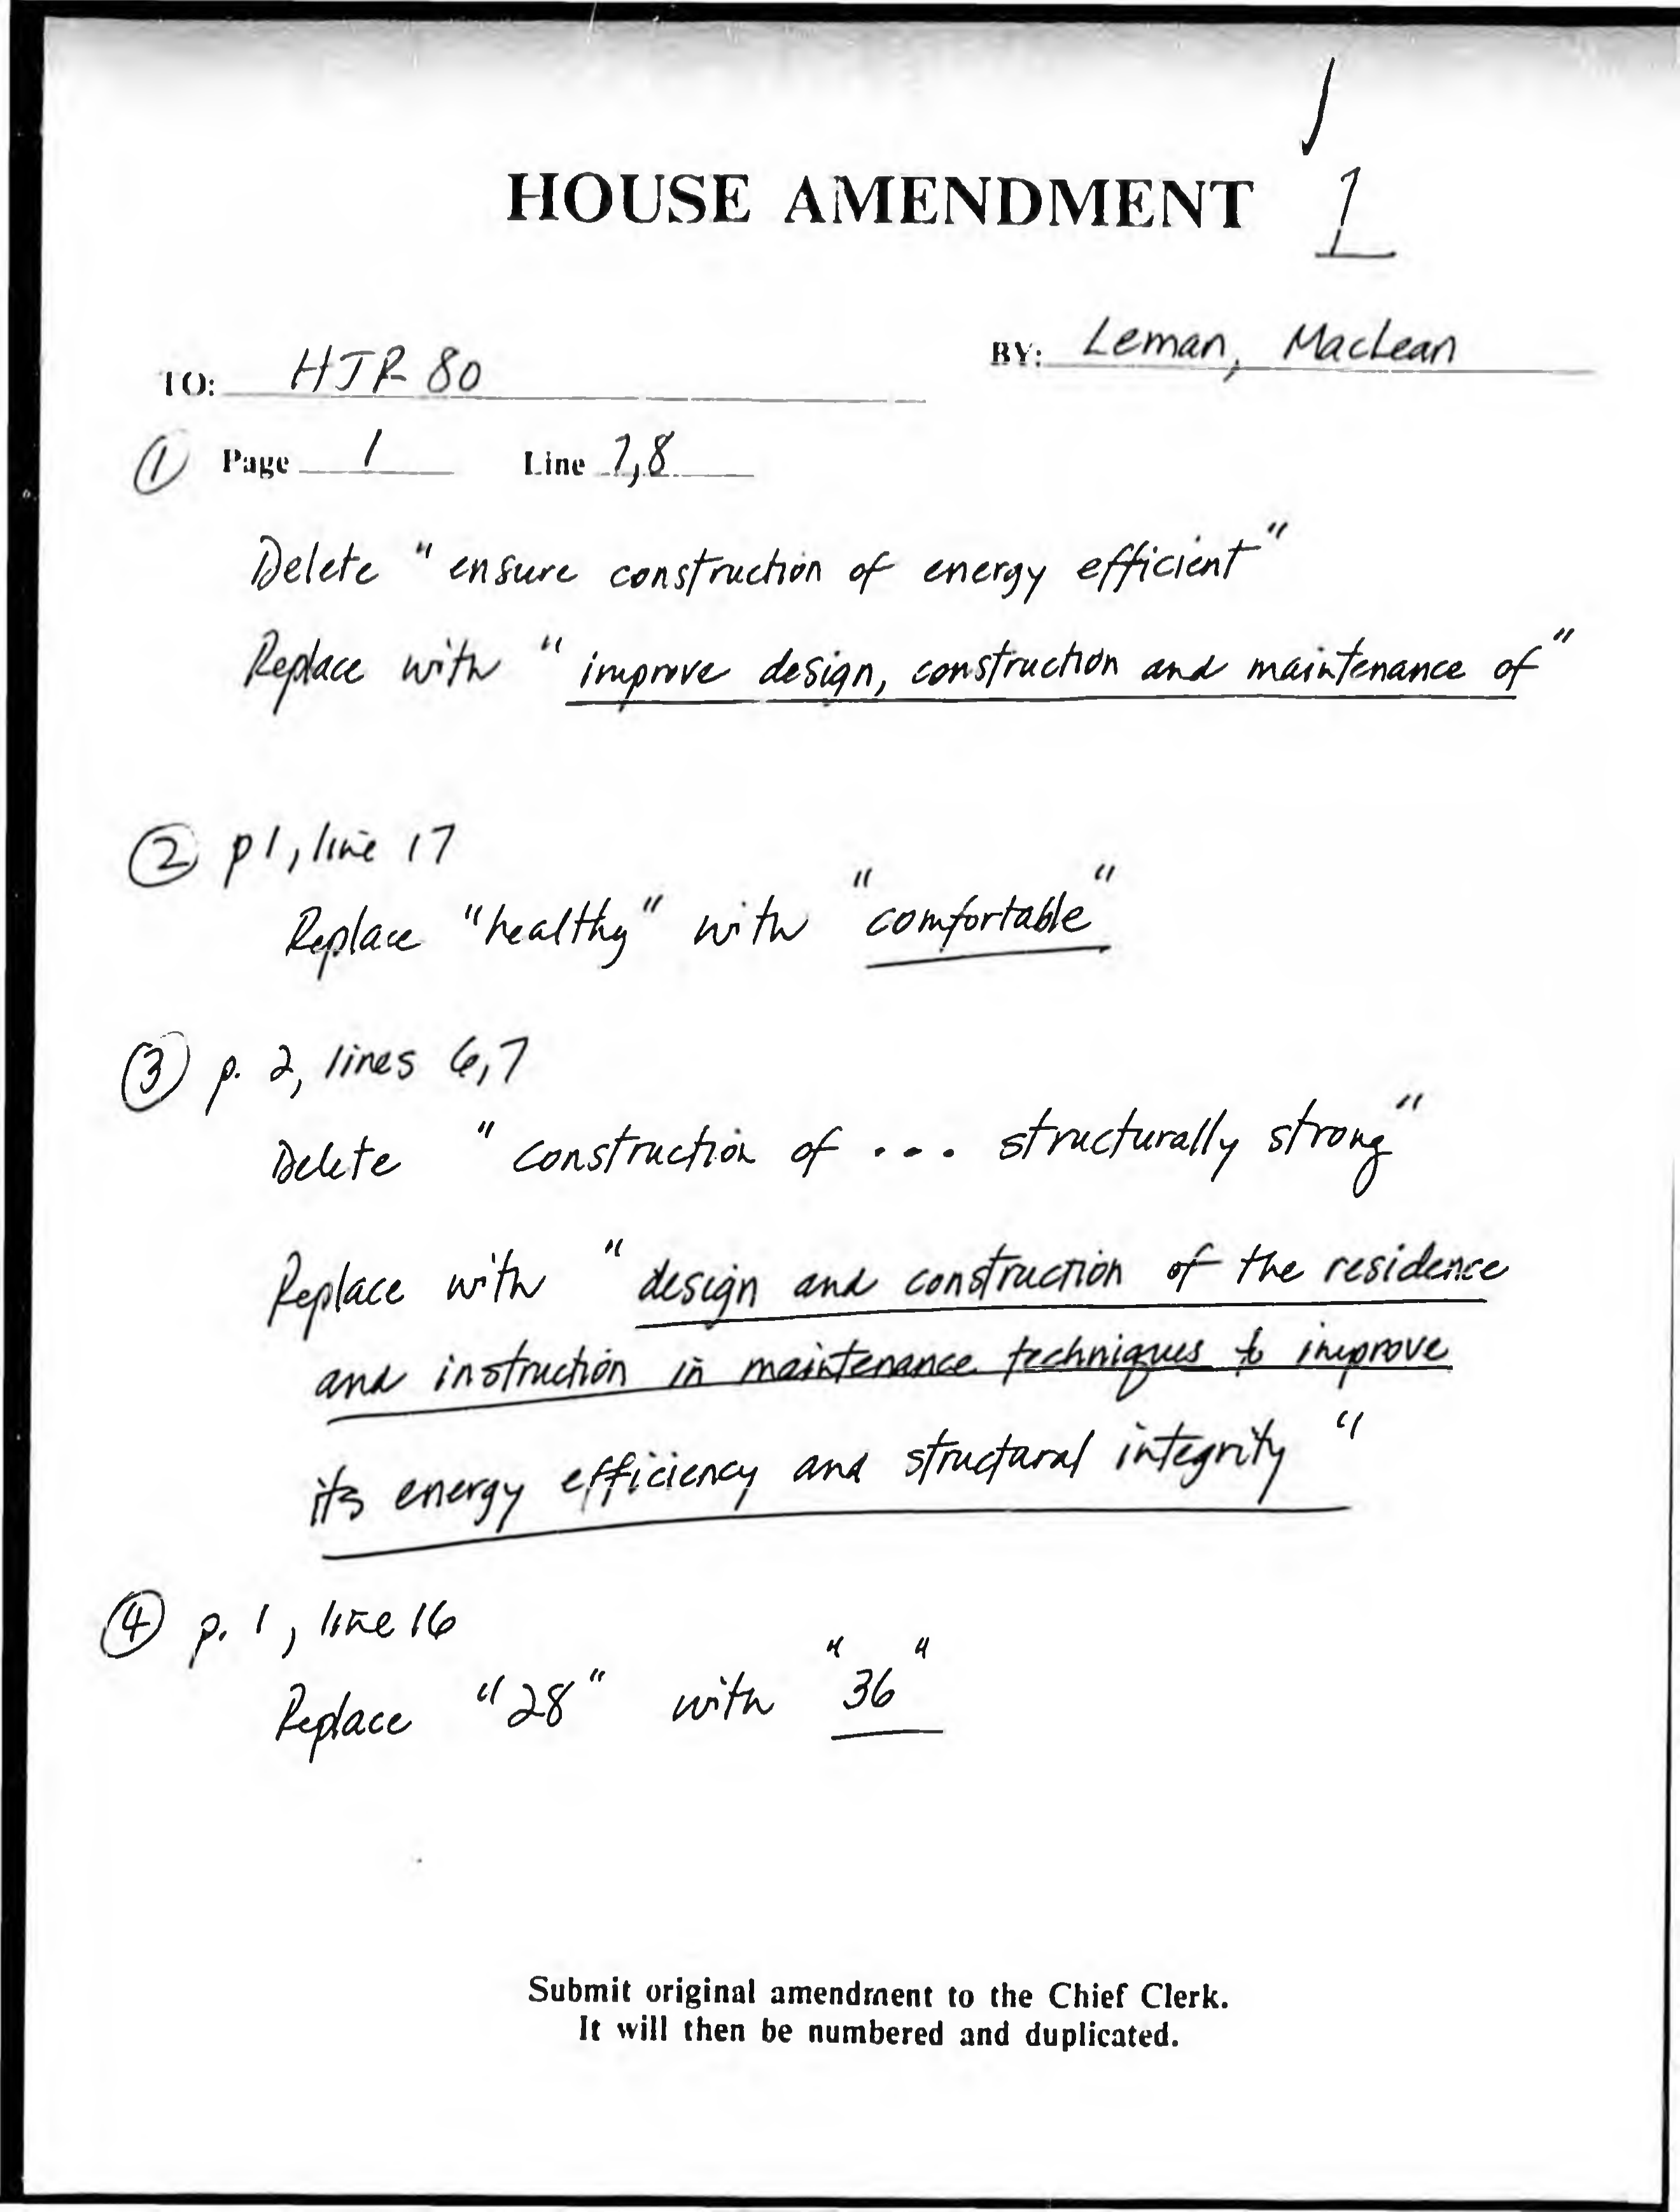 HOUSE AMENDMENT 1
TO: HJR 80 BY: Leman, MacLean
① Page 1 Line 7,8
Delete "ensure construction of energy efficient"
Replace with "improve design, construction and maintenance of"
② p1, line 17
Replace "healthy" with "comfortable"
③ p. 2, lines 6,7
Delete "construction of ... structurally strong"
Replace with "design and construction of the residence
and instruction in maintenance techniques to improve
its energy efficiency and structural integrity"
④ p. 1, line 16
Replace "28" with "36"
Submit original amendment to the Chief Clerk.
It will then be numbered and duplicated.